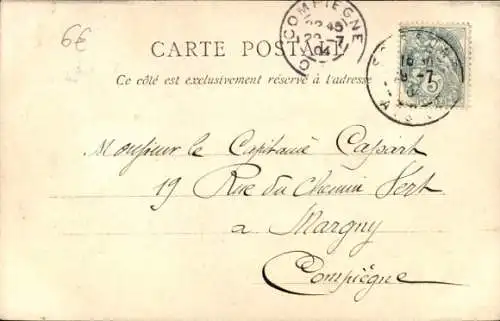 6€
CARTE POSTALE
Ce côté est exclusivement réservé à l'adresse
COMPIEGNE
22 45
22 -7
04
16 30
-7
5
AISNE
Monsieur le Capitaine Cassart
19 Rue du Chemin Vert
a Margny
Compiègne